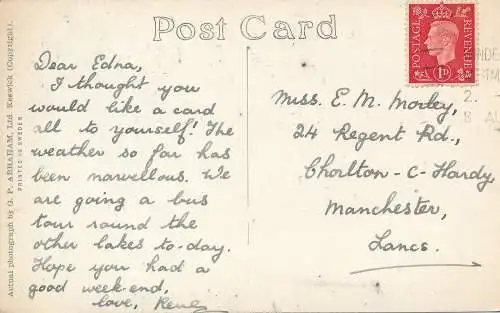 Post Card
Actual photograph by G. P. ABRAHAM, Ltd. Keswick (Copyright).
PRINTED IN SWEDEN
Dear Edna,
I thought you
would like a card
all to yourself! The
weather so far has
been marvellous. We
are going a bus
tour round the
other lakes to-day.
Hope you had a
good week-end,
love, Rene
POSTAGE
REVENUE
1D
Miss. E. M. Morley,
24 Regent Rd.,
Chorlton-C-Hardy,
Manchester,
Lancs.